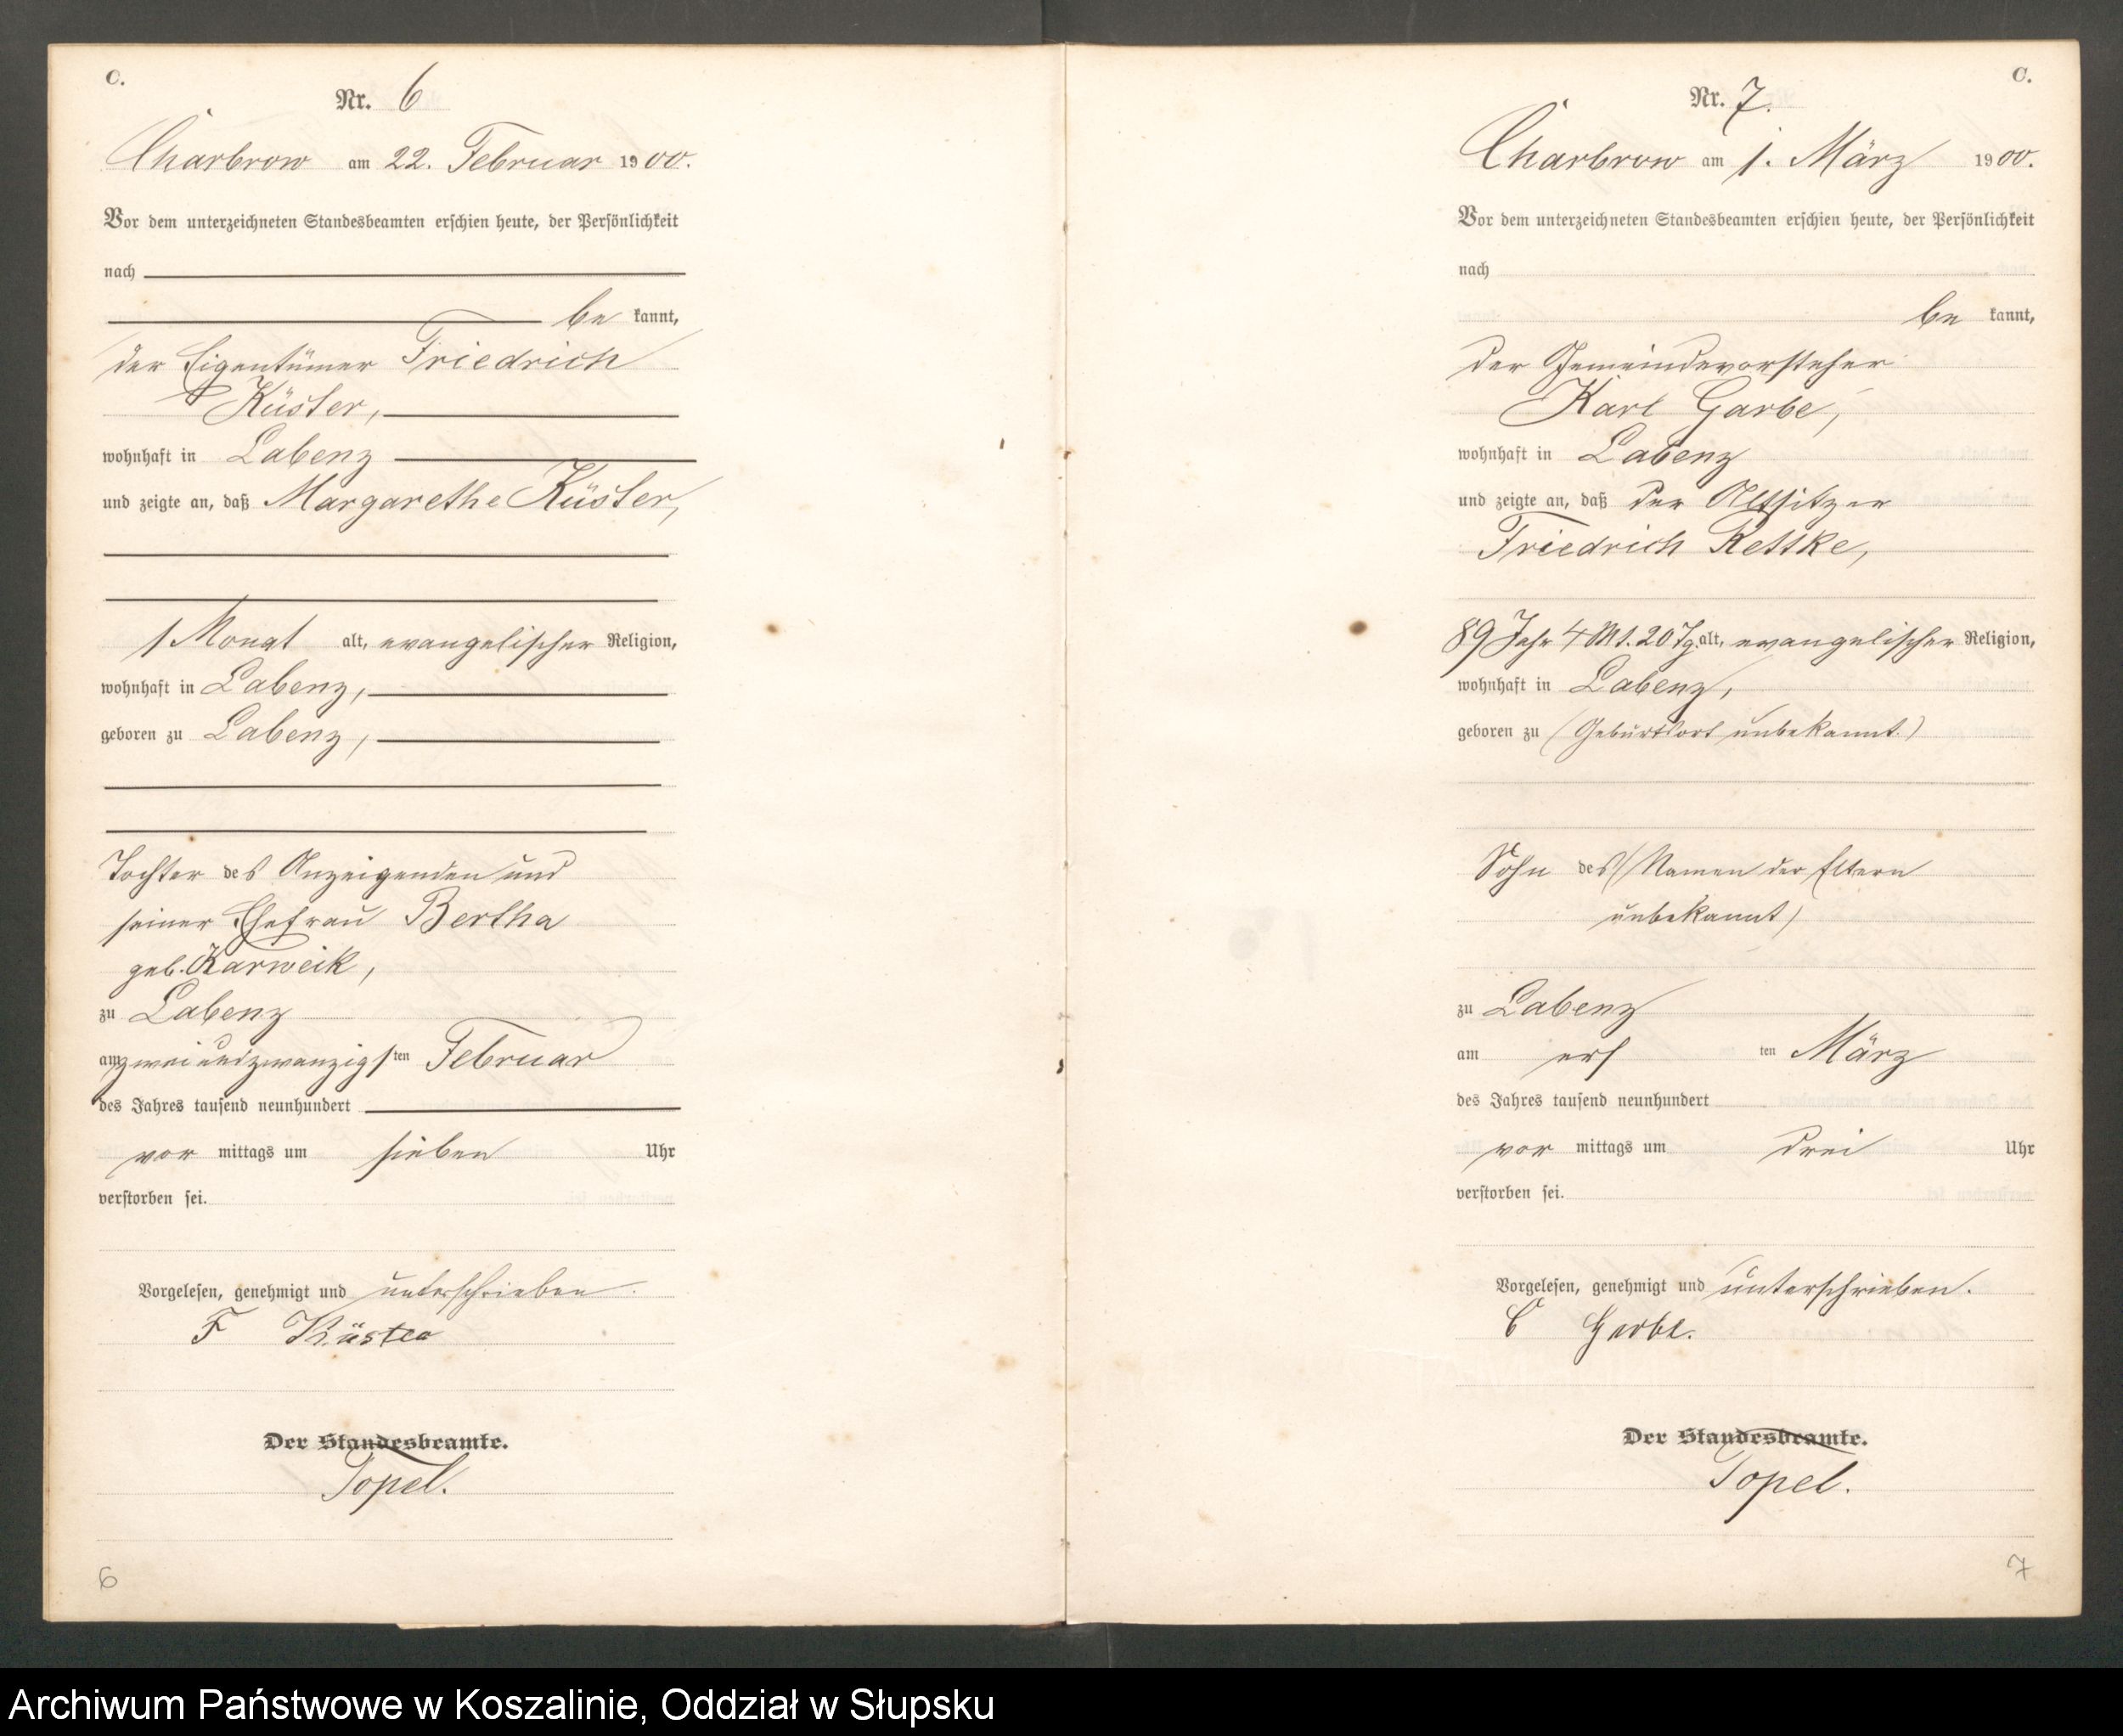 C.
Nr. 6
Charbrow am 22. Februar 1900.
Vor dem unterzeichneten Standesbeamten erschien heute, der Persönlichkeit
nach
be kannt,
der Eigentümer Friedrich
Küster,
wohnhaft in Labenz
und zeigte an, daß Margarethe Küster,
1 Monat alt, evangelischer Religion,
wohnhaft in Labenz,
geboren zu Labenz,
Tochter des Anzeigenden und
seiner Ehefrau Bertha
geb. Karweik,
zu Labenz
am zweiundzwanzigsten Februar
des Jahres tausend neunhundert
vor mittags um sieben Uhr
verstorben sei.
Vorgelesen, genehmigt und unterschrieben.
F Küster
Der Standesbeamte.
Topel.
6
C.
Nr. 7.
Charbrow am 1. März 1900.
Vor dem unterzeichneten Standesbeamten erschien heute, der Persönlichkeit
nach
be kannt,
der Gemeindevorsteher
Karl Garbe,
wohnhaft in Labenz
und zeigte an, daß der Altsitzer
Friedrich Rettke,
89 Jahr 4 Mt. 20 Tg. alt, evangelischer Religion,
wohnhaft in Labenz,
geboren zu (Geburtsort unbekannt.)
Sohn des (Namen der Eltern
unbekannt)
zu Labenz
am ersten März
des Jahres tausend neunhundert
vor mittags um drei Uhr
verstorben sei.
Vorgelesen, genehmigt und unterschrieben.
C Garbe.
Der Standesbeamte.
Topel.
7
Archiwum Państwowe w Koszalinie, Oddział w Słupsku